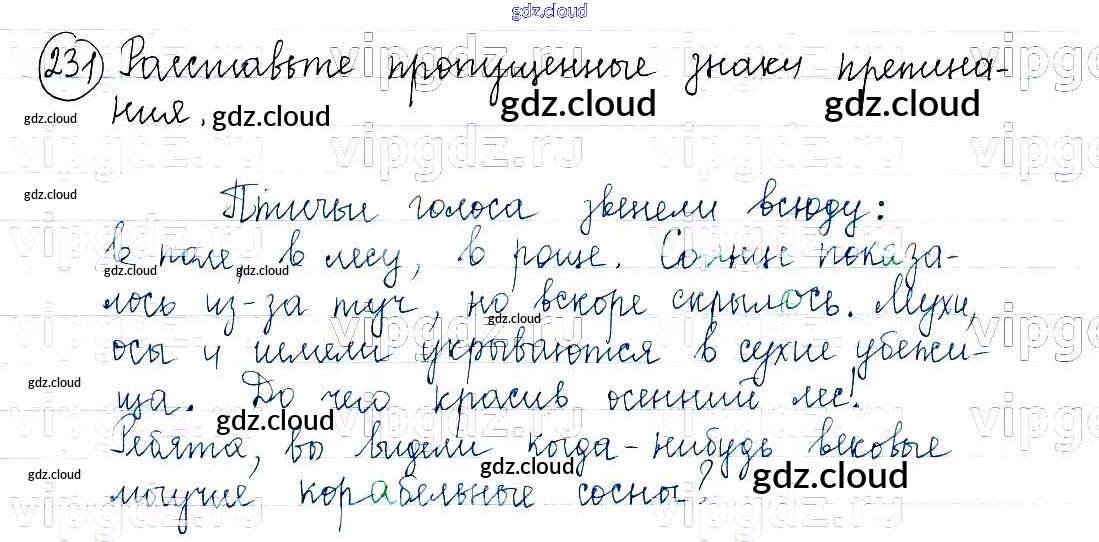 gdz.cloud
231 Расставьте пропущенные знаки препина-
ния.
Птичьи голоса звенели всюду:
в поле, в лесу, в роще. Солнце показа-
лось из-за туч, но вскоре скрылось. Мухи,
осы и шмели укрываются в сухие убежи-
ща. До чего красив осенний лес!
Ребята, вы видели когда-нибудь вековые
могучие корабельные сосны?
gdz.cloud
gdz.cloud
gdz.cloud
gdz.cloud
gdz.cloud
gdz.cloud
gdz.cloud
gdz.cloud
gdz.cloud
gdz.cloud
gdz.cloud
gdz.cloud
gdz.cloud
gdz.cloud
vipgdz.ru
vipgdz.ru
vipgdz.ru
vipgdz.ru